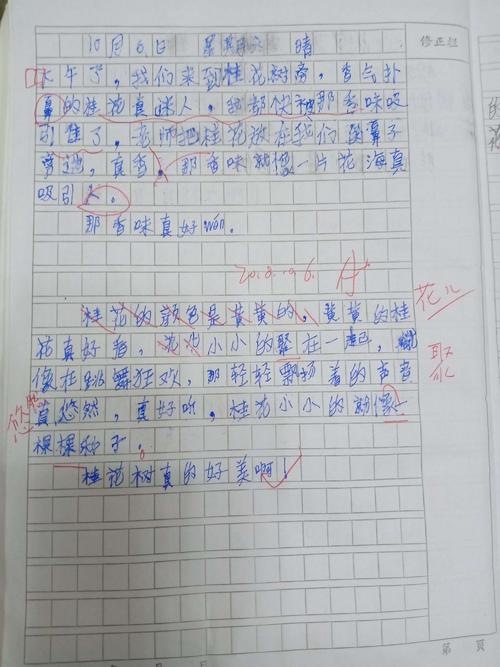 10月6日 星期六 晴 修正栏
下午了，我们来到桂花树旁，香气扑
鼻的桂花真迷人，我都快被那香味吸
引住了，老师把桂花放在我们的鼻子
旁边，真香，那香味就像一片花海真
吸引人。
那香味真好wén。
2018.10.6.
桂花的颜色是黄黄的，黄黄的桂
花真好看，小小的聚在一起，
像在跳舞狂欢，那轻轻飘扬着的声音
真悠然，真好听，桂花小小的就像一
棵棵种子。
桂花树真的好美啊！
花儿
聚
悠然
第 頁